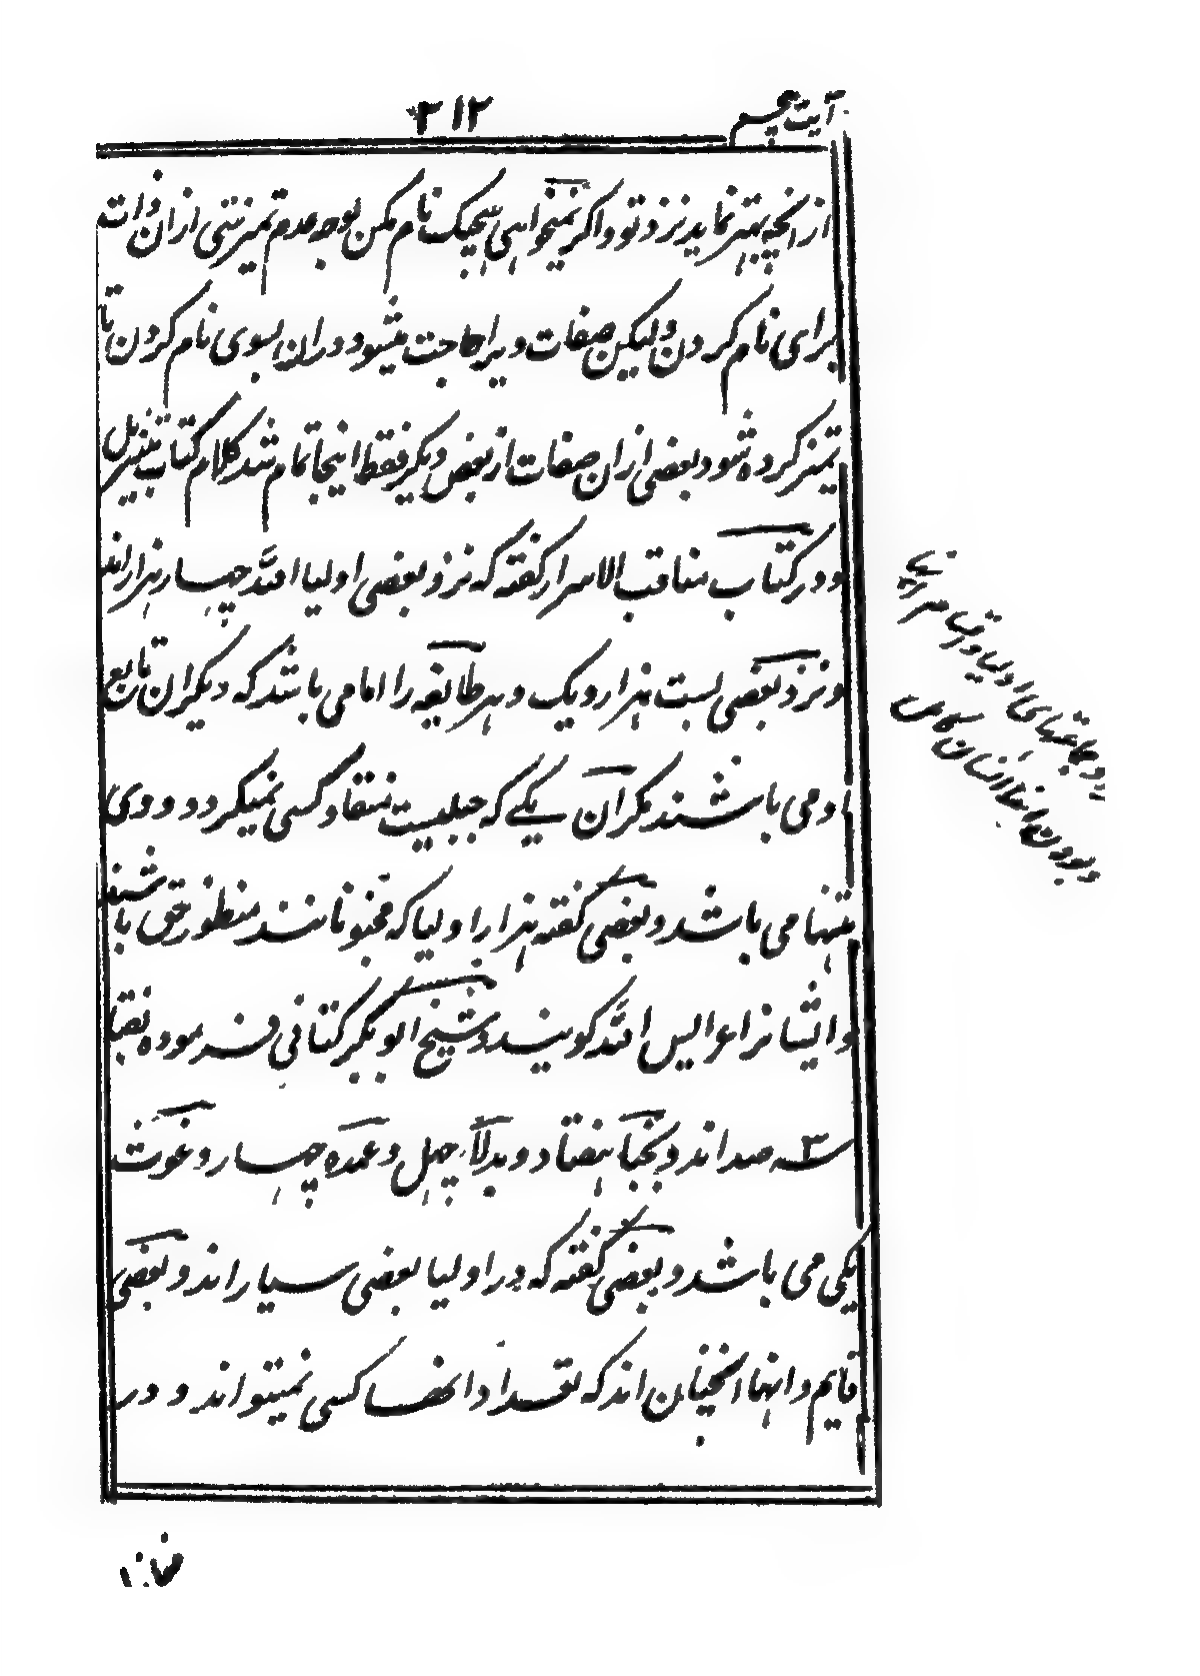 آیت پنجم
۳۱۲
از انچه بهتر نماید نزد تو و اکر نمیخواهی هیچیک نام مکن بوجه عدم تمیز شی از ان ذات
برای نام کردن ولیکن صفات ویرا حاجت میشود دران بسوی نام کردن تا
تمیز کرده شود بعضی ازان صفات از بعض دیکر فقط اینجا تمام شد کلام کتاب تنزیل
و در کتاب مناقب الاسرار کفته که نزد بعضی اولیا الله چهار هزار اند
و نزد بعضی بست هزار و یک و هر طایفه را امامی باشد که دیکران تابع
او می باشند مکر آن یکے که جبلیت منقاد کسی نمیکردد و وی
تنها می باشد و بعضی کفته هزار اولیا که مجنونانند منظور حق باشند
و ایشانرا عرایس الله کویند و شیخ ابو بکر کتانی فرموده نقبا
سه صد اند و نجبا هفتاد و بدلا چهل و عمده چهار و غوث
یکی می باشد و بعضی کفته که در اولیا بعضی سیار اند و بعضی
قایم و اینها انچنان اند که تعداد انها کسی نمیتواند و در
در جماعتهای اولیا و اقسام مراتب
و بودن ابنا انسان کامل